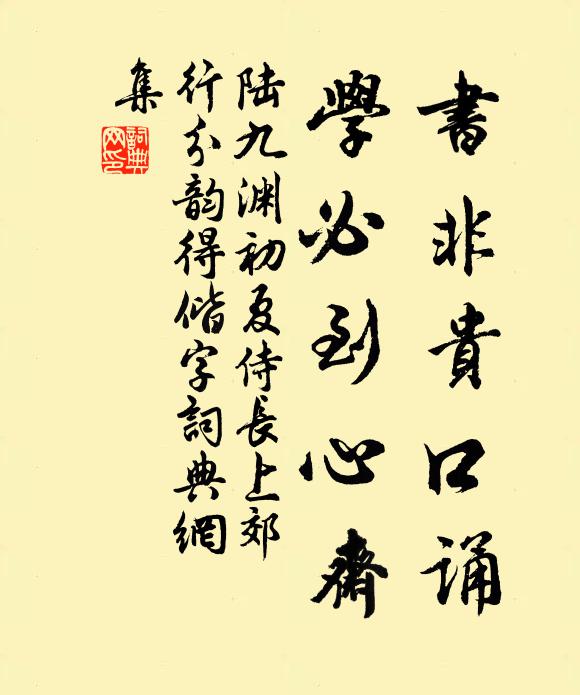 書非貴口誦
學必到心齋
陆九渊初夏侍長上郊
行分韵得偕字詞典網
集
詞典
网印